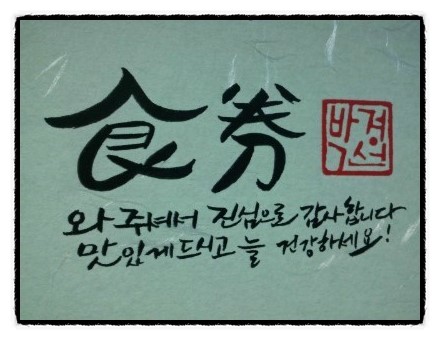 食券
와 주셔서 진심으로 감사합니다
맛있게 드시고 늘 건강하세요!